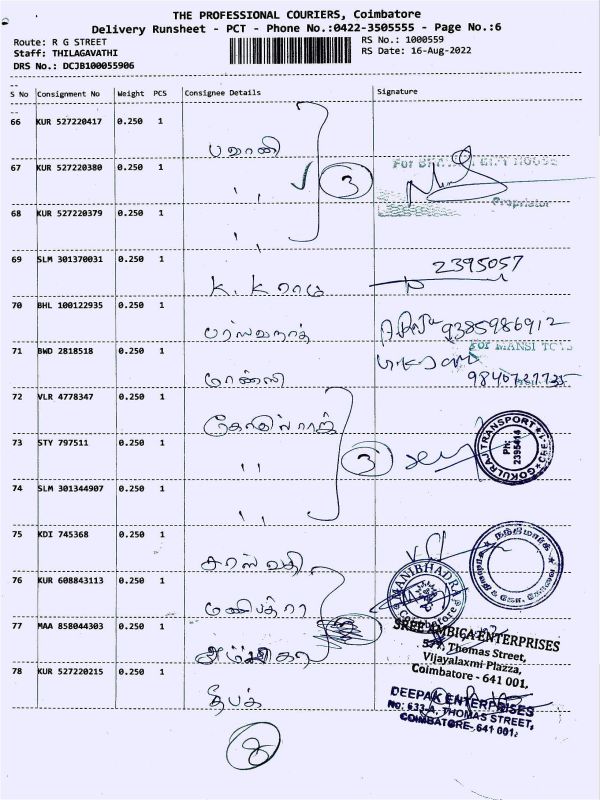 THE PROFESSIONAL COURIERS, Coimbatore
Delivery Runsheet - PCT - Phone No.:0422-3505555 - Page No.:6
Route: R G STREET
RS No.: 1000559
Staff: THILAGAVATHI
RS Date: 16-Aug-2022
DRS No.: DCJB100055906
S No Consignment No Weight PCS Consignee Details Signature
66 KUR 527220417 0.250 1
பவானி
67 KUR 527220380 0.250 1
,, 3
For
Proprietor
68 KUR 527220379 0.250 1
,,
69 SLM 301370031 0.250 1
K. K ராமு
2395057
70 BHL 100122935 0.250 1
பர்ஸ்வநாத்
9385986912
71 BWD 2818518 0.250 1
For MANSI TOYS
மான்ஸி
72 VLR 4778347 0.250 1
73 STY 797511 0.250 1
,, 3
GOKULRAJ TRANSPORT
PH: 2395414
74 SLM 301344907 0.250 1
,,
75 KDI 745368 0.250 1
76 KUR 608843113 0.250 1
மணிபத்ரா
MANIBHADRA
Coimbatore
77 MAA 858044303 0.250 1
அம்பிகா
SREE AMBICA ENTERPRISES
577, Thomas Street,
Vijayalaxmi Plazza,
Coimbatore - 641 001.
78 KUR 527220215 0.250 1
தீபக்
DEEPAK ENTERPRISES
No: 633-A, THOMAS STREET,
COIMBATORE-641 001.
8